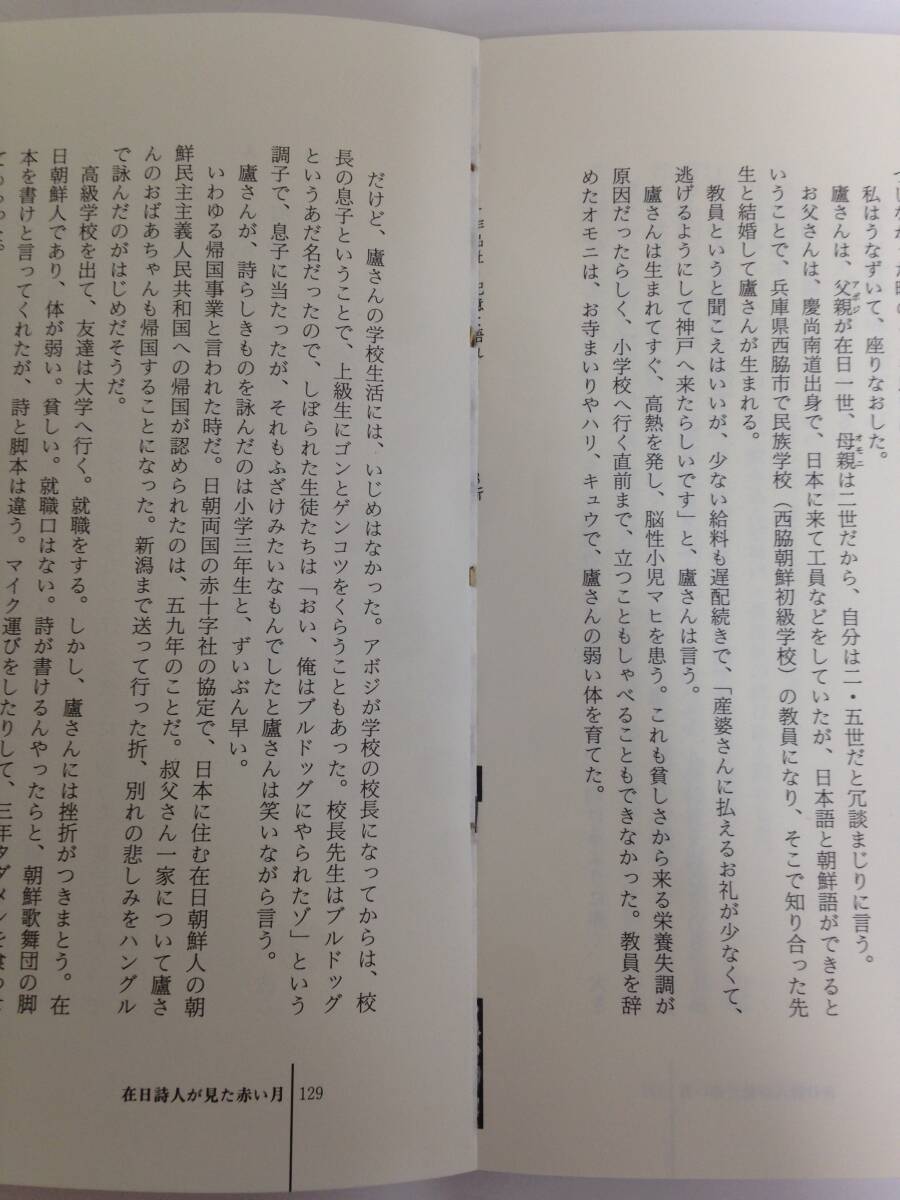 私はうなずいて、座りなおした。
盧さんは、父親が在日一世、母親は二世だから、自分は二・五世だと冗談まじりに言う。
アボジ
オモニ
お父さんは、慶尚南道出身で、日本に来て工員などをしていたが、日本語と朝鮮語ができると
いうことで、兵庫県西脇市で民族学校（西脇朝鮮初級学校）の教員になり、そこで知り合った先
生と結婚して盧さんが生まれる。
教員というと聞こえはいいが、少ない給料も遅配続きで、「産婆さんに払えるお礼が少なくて、
逃げるようにして神戸へ来たらしいです」と、盧さんは言う。
盧さんは生まれてすぐ、高熱を発し、脳性小児マヒを患う。これも貧しさから来る栄養失調が
原因だったらしく、小学校へ行く直前まで、立つこともしゃべることもできなかった。教員を辞
めたオモニは、お寺まいりやハリ、キュウで、盧さんの弱い体を育てた。
だけど、盧さんの学校生活には、いじめはなかった。アボジが学校の校長になってからは、校
長の息子ということで、上級生にゴンとゲンコツをくらうこともあった。校長先生はブルドッグ
というあだ名だったので、しぼられた生徒たちは「おい、俺はブルドッグにやられたゾ」という
調子で、息子に当たったが、それもふざけみたいなもんでしたと盧さんは笑いながら言う。
盧さんが、詩らしきものを詠んだのは小学三年生と、ずいぶん早い。
いわゆる帰国事業と言われた時だ。日朝両国の赤十字社の協定で、日本に住む在日朝鮮人の朝
鮮民主主義人民共和国への帰国が認められたのは、五九年のことだ。叔父さん一家について盧さ
んのおばあちゃんも帰国することになった。新潟まで送って行った折、別れの悲しみをハングル
で詠んだのがはじめだそうだ。
高級学校を出て、友達は大学へ行く。就職をする。しかし、盧さんには挫折がつきまとう。在
日朝鮮人であり、体が弱い。貧しい。就職口はない。詩が書けるんやったらと、朝鮮歌舞団の脚
本を書けと言ってくれたが、詩と脚本は違う。マイク運びをしたりして、三年タダメシを食わせ
在日詩人が見た赤い月
129